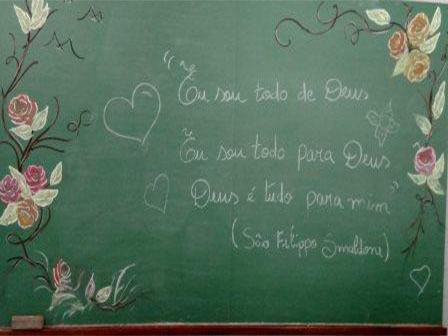 "Eu sou todo de Deus
Eu sou todo para Deus
Deus é tudo para mim"
(São Filippo Smaldone)